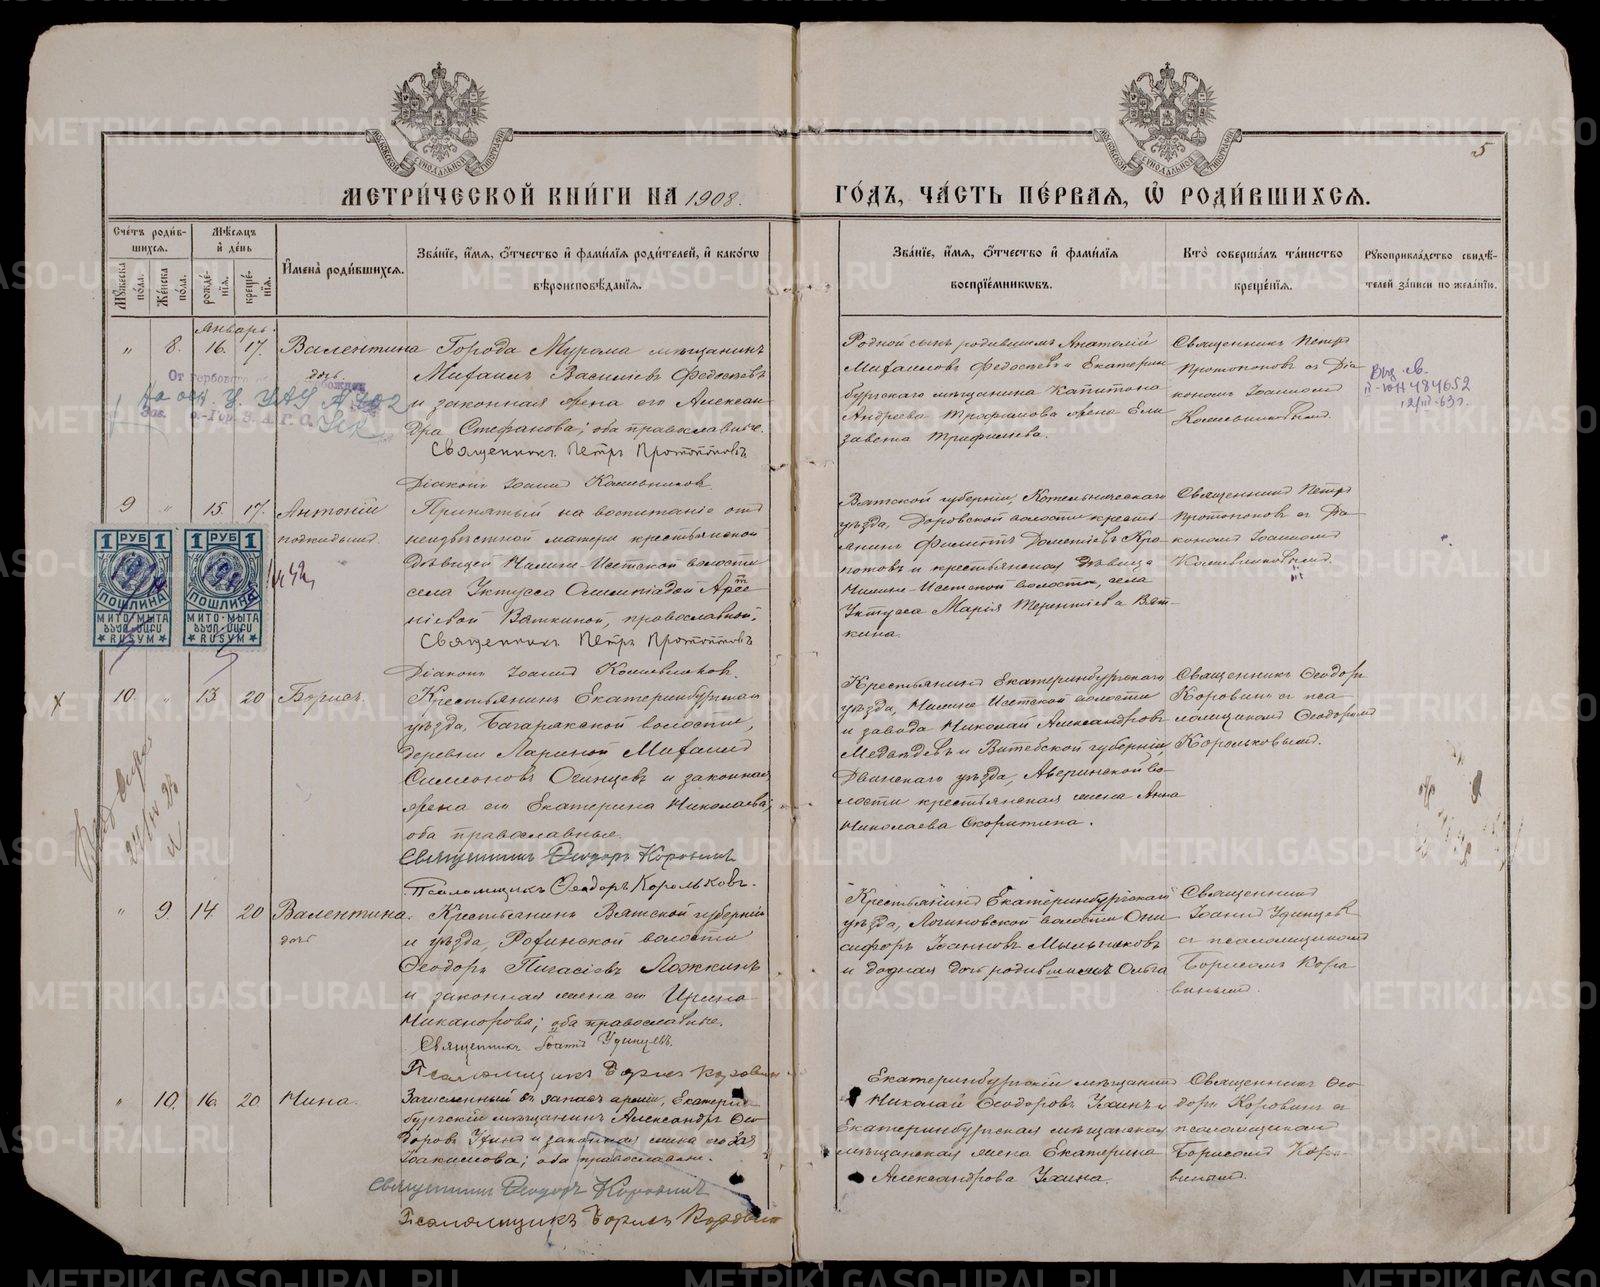 5
МЕТРИ́ЧЕСКОЙ КНИ́ГИ НА 1908.
ГО́ДЪ, ЧА́СТЬ ПЕ́РВАЯ, Ѡ҆ РОДИ́ВШИХСЯ.
Сче́тъ роди́в-
шихся.
Мѣ́сяцъ
и҆ де́нь
И҆мена̀ роди́вшихся.
Зва́нїе, и҆́мя, ѻ҆́тчество и҆ фами́лїя роди́телей, и҆ како́гѡ
вѣроисповѣ́данїя.
Мꙋ́жеска по́ла.
Же́нска по́ла.
рожде́-
нїя.
креще́-
нїя.
Зва́нїе, и҆́мя, ѻ҆́тчество и҆ фами́лїя
воспрїе́мникѡвъ.
Кто̀ соверша́лъ та́инство
креще́нїя.
Рꙋкоприкла́дство свидѣ́-
телей за́писи по жела́нїю.
Январь.
" 8. 16. 17. Валентина
дочь
Города Мурома мѣщанинъ
Михаилъ Василіевъ Федосѣевъ
и законная жена его Алексан-
дра Стефанова; оба православные.
Священникъ Петръ Протопоповъ
Діаконъ Іоаннъ Кошевниковъ
Родной сынъ родившихъ Анатолій
Михаиловъ Федосѣевъ и Екатерин
бургскаго мѣщанина Капитона
Андреева Трифанова жена Ели
завета Трифанова.
Священникъ Петръ
Протопоповъ съ Діа
кономъ Іоанномъ
Выд. св.
II-ЮН 484652
12/III-63г.
9 " 15. 17. Антоній
подкидышъ.
Принятый на воспитаніе отъ
неизвѣстной матери крестьянской
дѣвицей Нижне-Исетской волости
села Уктусса Олимпіадой Арсе
ніевой Вяткиной, православной.
Священникъ Петръ Протопоповъ
Діаконъ Іоаннъ
Вятской губерніи, Котельническаго
уѣзда, Даровской волости кресть
янинъ Филиппъ Дометіевъ Кро
потовъ и крестьянская дѣвица
Нижне-Исетской волости, села
Уктусса Марія Терентіева Вят-
кина.
Священникъ Петръ
Протопоповъ съ Діа
кономъ Іоанномъ
1 РУБ 1
ПОШЛИНА
МИТО·МЫТА
RUSYM
1 РУБ 1
ПОШЛИНА
МИТО·МЫТА
RUSYM
10. " 13. 20 Борисъ.
Крестьянинъ Екатеринбургскаго
уѣзда, Багарякской волости,
деревни Лариной Михаилъ
Симеоновъ Огинцевъ и законная
жена его Екатерина Николаева;
оба православные.
Священникъ Ѳеодоръ Коровинъ
Псаломщикъ Ѳеодоръ Корольковъ.
Крестьянинъ Екатеринбургскаго
уѣзда, Нижне-Исетской волости
и завода Николай Александровъ
Медвѣдевъ и Витебской губерніи,
Двинскаго уѣзда, Аверинской во-
лости крестьянская жена Анна
Николаева Скоритина.
Священникъ Ѳеодоръ
Коровинъ съ пса-
ломщикомъ Ѳеодоромъ
Корольковымъ.
" 9. 14. 20 Валентина.
дочь
Крестьянинъ Вятской губерніи
и уѣзда, Рохинской волости
Ѳеодоръ Пигасіевъ Ложкинъ
и законная жена его Ирина
Никанорова; оба православные.
Священникъ Іоаннъ Удинцевъ.
Псаломщикъ Борисъ Коровинъ
Крестьянинъ Екатеринбургскаго
уѣзда, Логиновской волости Они
сифоръ Іоанновъ Мыльниковъ
и родная дочь родившихъ Ольга
Священникъ
Іоаннъ Удинцевъ
съ псаломщикомъ
Борисомъ Коро
винымъ.
" 10. 16. 20. Нина.
Зачисленный въ запасъ арміи, Екатерин
бургскій мѣщанинъ Александръ Ѳео
доровъ Ухинъ и законная жена его Зоя
Іоакимова; оба православные.
Священникъ Ѳеодоръ Коровинъ
Псаломщикъ Борисъ Коровинъ
Екатеринбургскій мѣщанинъ
Николай Ѳеодоровъ Ухинъ и
Екатеринбургская мѣщанская
мѣщанская жена Екатерина
Александрова Ухина.
Священникъ Ѳео
доръ Коровинъ съ
псаломщикомъ
Борисомъ Коро-
винымъ.
METRIKI.GASO-URAL.RU